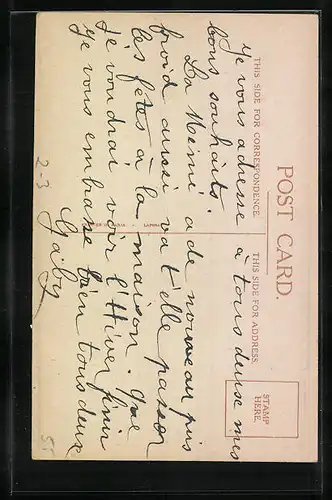 POST CARD.
THIS SIDE FOR CORRESPONDENCE.
THIS SIDE FOR ADDRESS.
STAMP
HERE.
Je vous adresse à tous deux mes
bons souhaits.
La Mémé a de nouveau pris
froid aussi va t'elle passer
les fêtes à la maison. Que
je voudrai voir l'Hiver finir
Je vous embrasse bien tous deux
Gaby
2-3